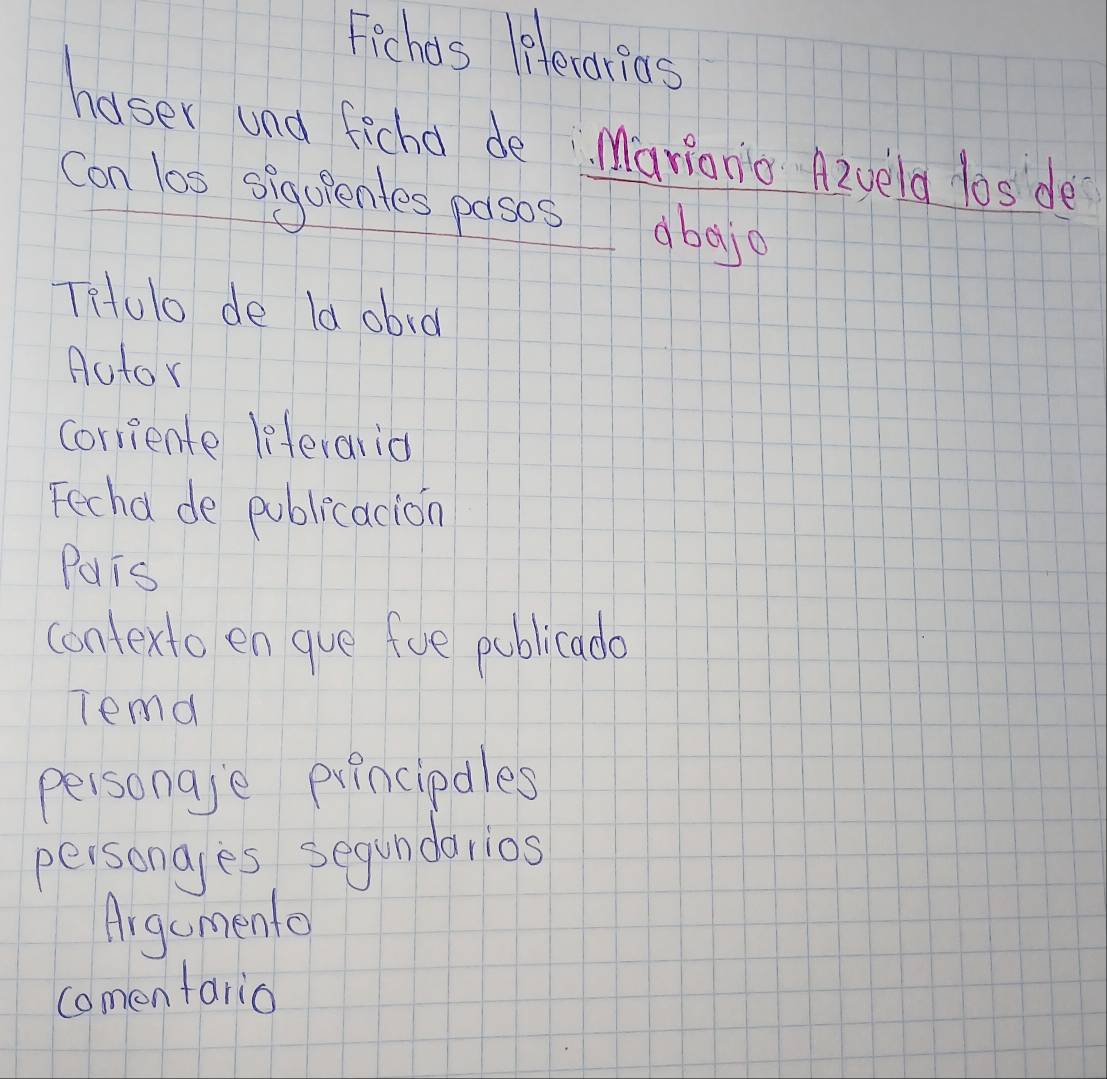 Fichas literarias
haser una ficha de Mariano Azuela los de
Con los siguientes pasos abajo
Titulo de la obra
Autor
corriente literaria
Fecha de publicación
País
contexto en que fue publicado
Tema
personaje principales
personajes segundarios
Argumento
comentario